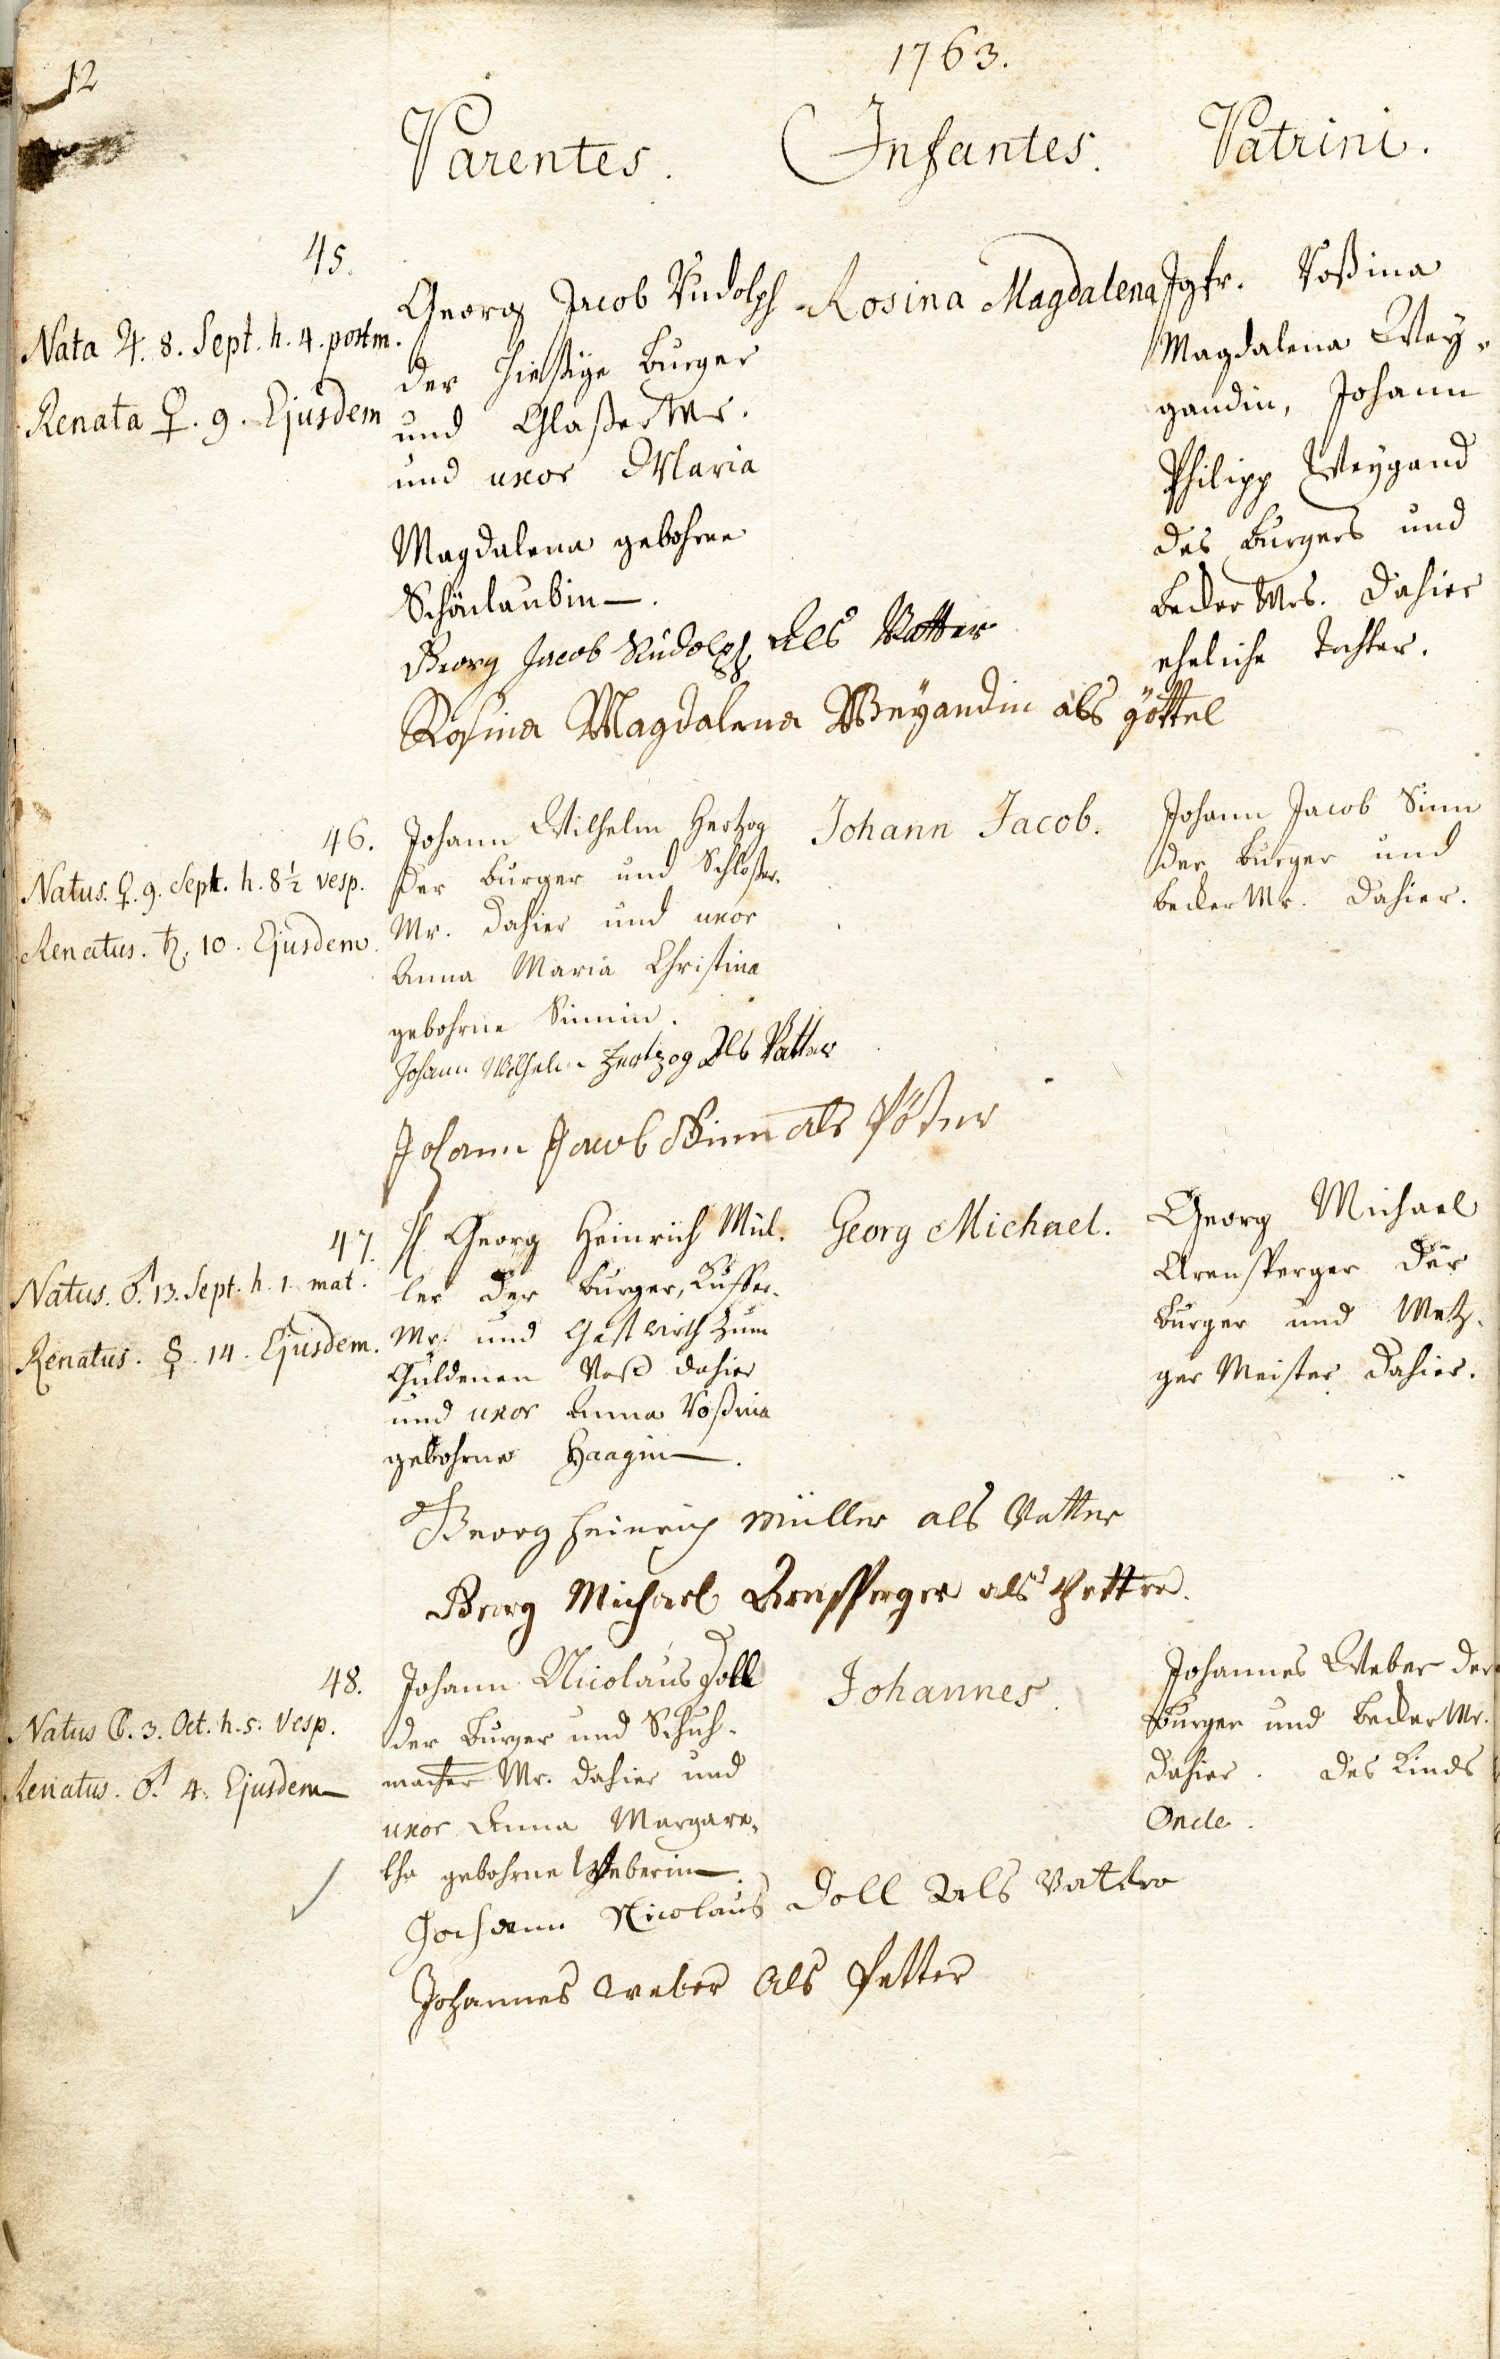 12
1763.
Parentes. Infantes. Patrini.
45.
Nata ♃. 8. Sept. h. 4. postm.
Renata ♀. 9. Ejusdem
Georg Jacob Rudolph
der hießige Burger
und Glaßer Mr.
und uxor Maria
Magdalena gebohrne
Schönlaubin.
Rosina Magdalena
Jgfr. Roßina
Magdalena Wey-
gandin, Johann
Philipp Weygand
des Burgers und
Becker Mrs. dahier
eheliche Tochter.
Georg Jacob Rudolph Als Vatter
Rosina Magdalena Weyandin als göttel
46.
Natus. ♀. 9. Sept. h. 8½ vesp.
Renatus. ♄. 10. Ejusdem.
Johann Wilhelm Hertzog
der Burger und Schlosser-
Mr. dahier und uxor
Anna Maria Christina
gebohrne Sinnin.
Johann Jacob.
Johann Jacob Sinn
der Burger und
Becker Mr. dahier.
Johann Wilhelm Hertzog Als Vatter
Johann Jacob Sinn als Pötter
47.
Natus. ♂. 13. Sept. h. 1. mat.
Renatus. ☿. 14. Ejusdem.
H. Georg Heinrich Mül-
ler der Burger, Kuffer-
Mr. und Gastwirth zum
Guldenen Roß dahier
und uxor Anna Roßina
gebohrne Haagin.
Georg Michael.
Georg Michael
Arensperger der
Burger und Metz-
ger Meister dahier.
Georg Heinrich Müller als Vatter
Georg Michael Arnsperger als Petter.
48.
Natus ☾. 3. Oct. h. 5. Vesp.
Renatus. ♂ 4. Ejusdem
Johann Nicolaus Doll
der Burger und Schuh-
macher Mr. dahier und
uxor Anna Margare-
tha gebohrne Weberin.
Johannes.
Johannes Weber der
Burger und Becker Mr.
dahier. des Kinds
Oncle.
Johann Nicolaus Doll Als Vatter
Johannes Weber Als Petter